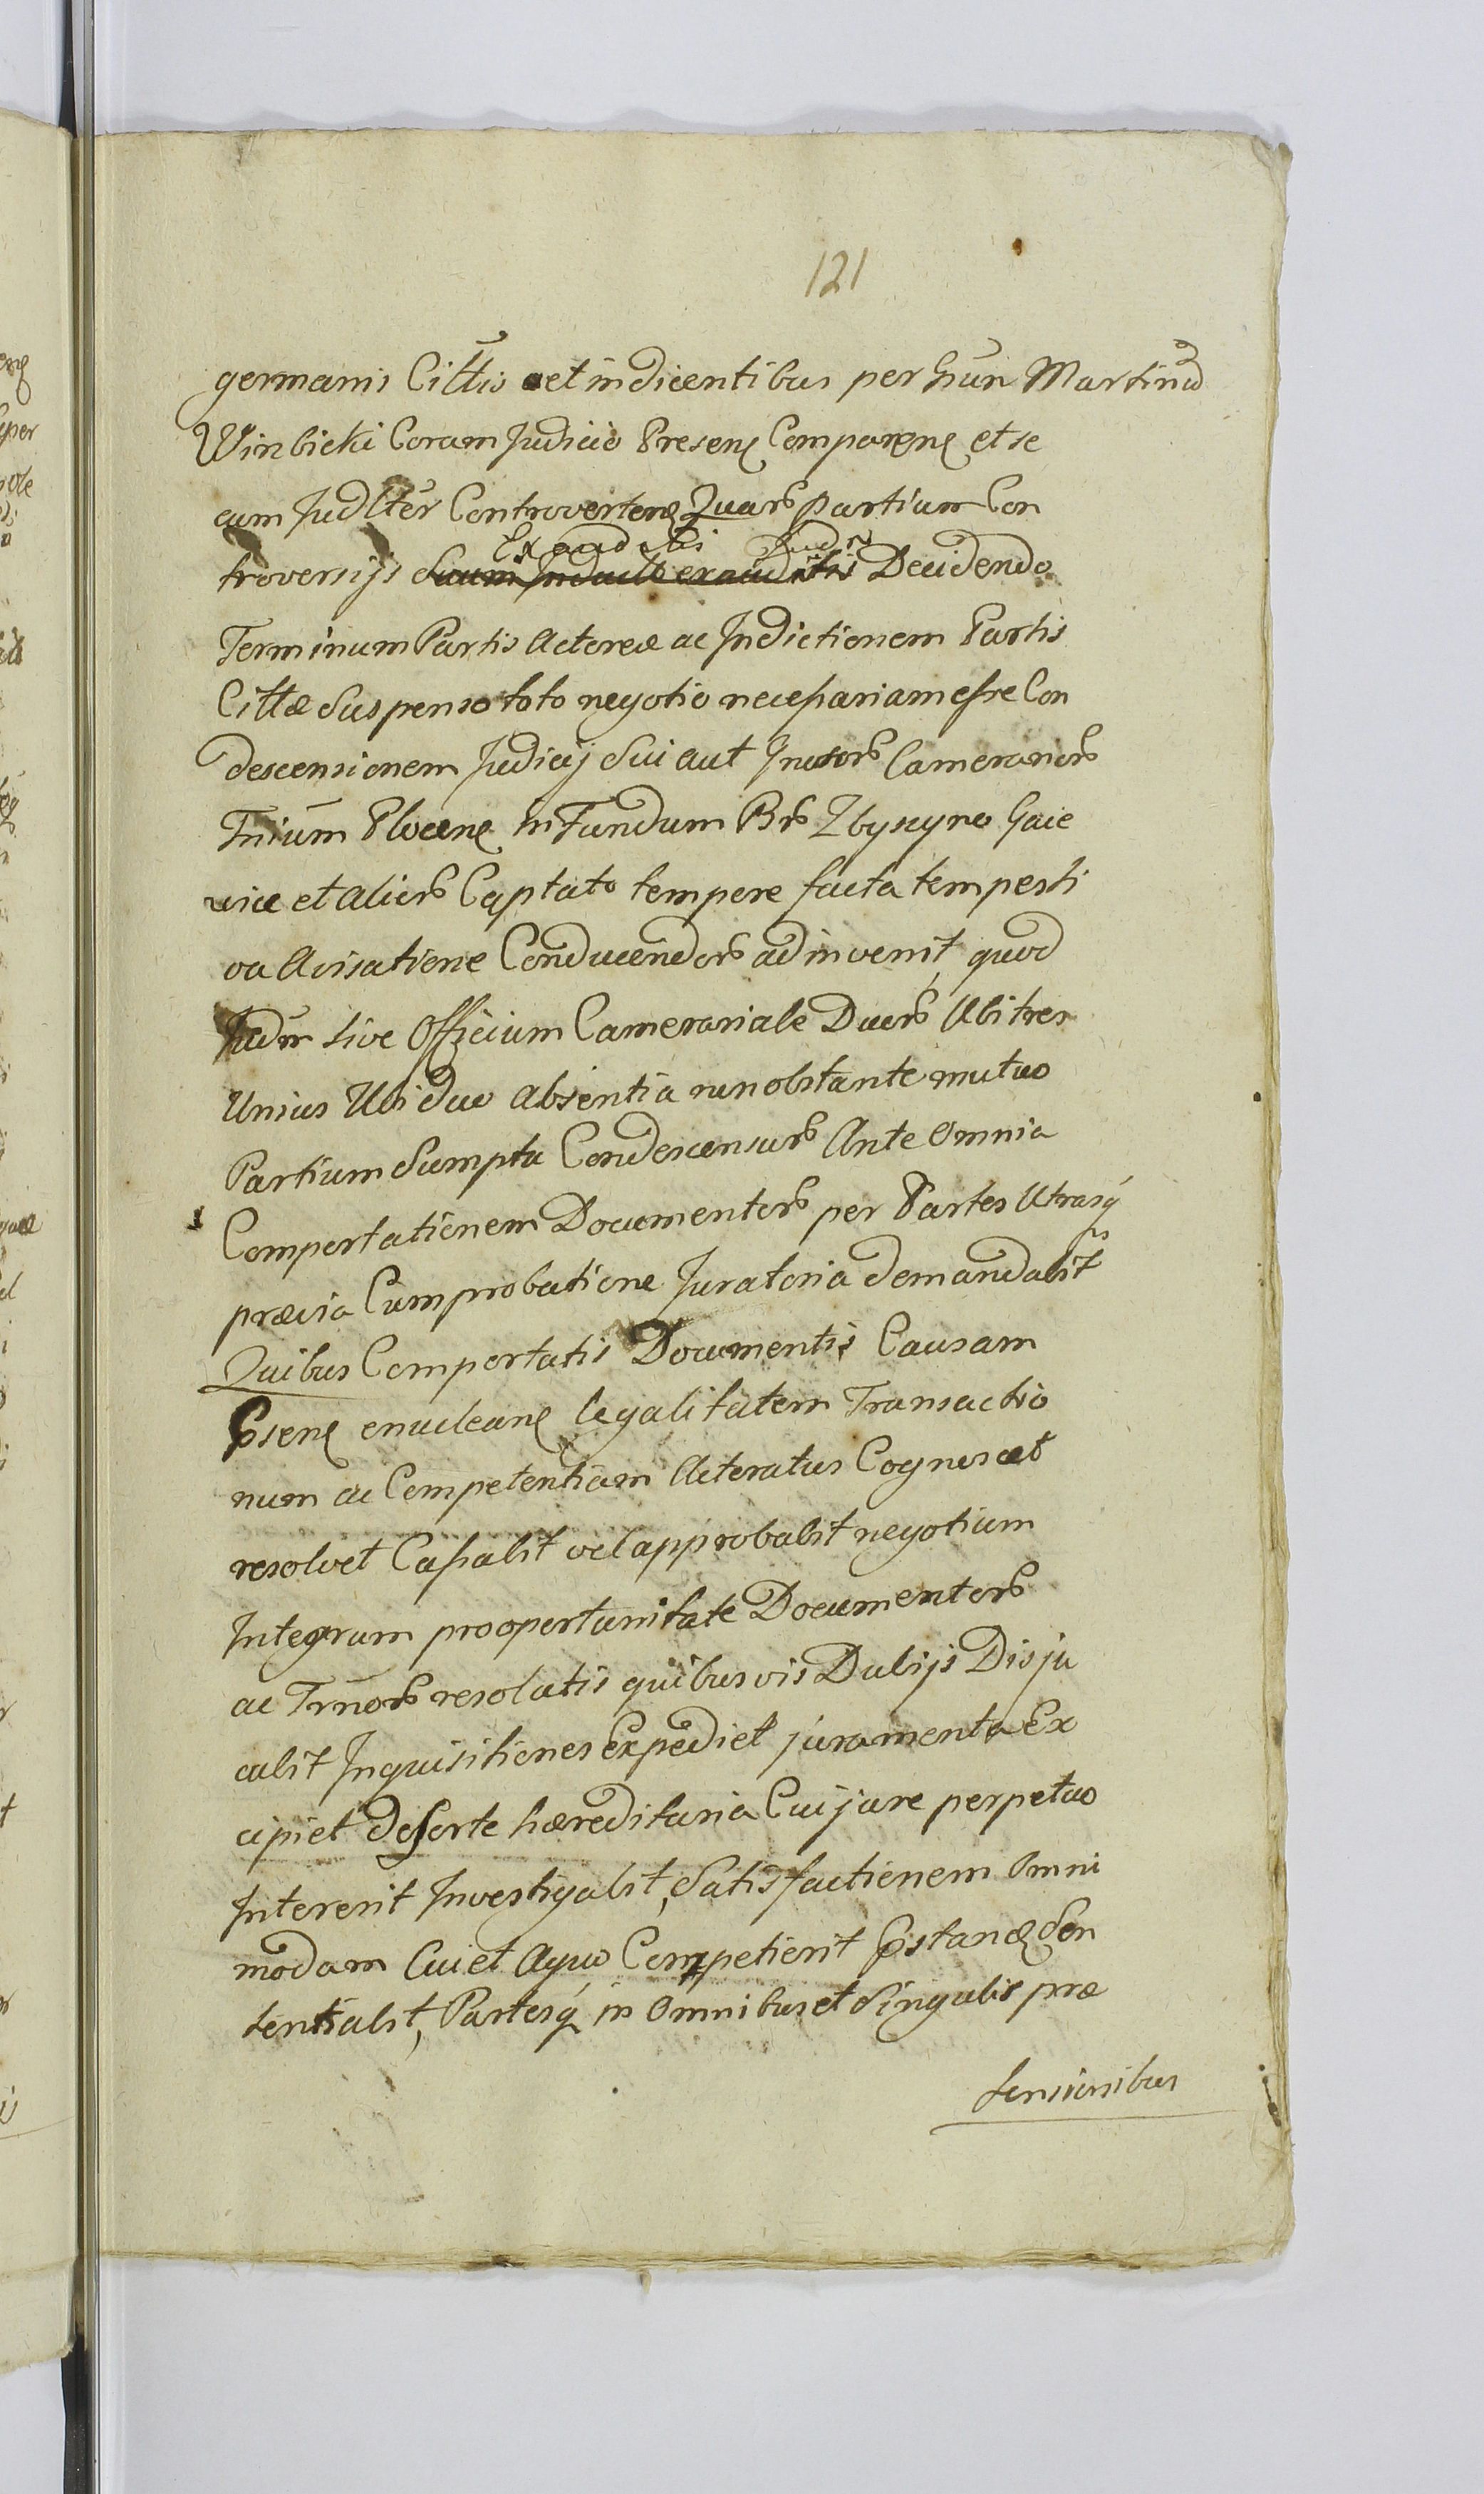 121
germanis Cittis et indicentibus per Gnũn Martinũ
Winbicki Coram Judicio Presenʒ Comparenʒ et se
cum Judltẽr Controvertenʒ Quarʒ partium Con
Exaudatis Judm
troversijs Decidendo
Terminum Partis Actoreæ ac Indictionem Partis
Cittæ Suspenso toto negotio necessariam esse Con
descensionem Judicij Sui aut Camerariorʒ
Plocenʒ in Fundum Brʒ Zbyszyno Gaie
vice et aliorʒ Captato tempore facta tempesti
va Avisatione Conducendorʒ adinvenit, quod
Judm̃ sive Officium Camerariale Duorʒ Ubi tres
Unius Ubi duo absentia non obstante mutuo
Partium Sumptu Condescensurʒ Ante Omnia
Comportationem Documentorʒ per Partes Utrasq́
prævia Comprobatione Juratoria demandabit
Quibus Comportatis Documentis Causam
Psenʒ enucleanʒ legalitatem Transactio
num ac Competentiam Actoratus Cognoscet
resolvet Cassabit vel approbabit negotium
Integrum pro oportunitate Documentorʒ
ac Trm̃orʒ resolutis quibusvis Dubijs Disju
cabit Inquisitiones Expediet juramenta Ex
cipiet de sorte hæreditaria Cui jure perpetuo
Intererit Investigabit, Satisfactionem Omni
modam Cui et A quo Competierit Sen
tentiabit, Partesq́ in Omnibus et Singulis præ
sensionibus